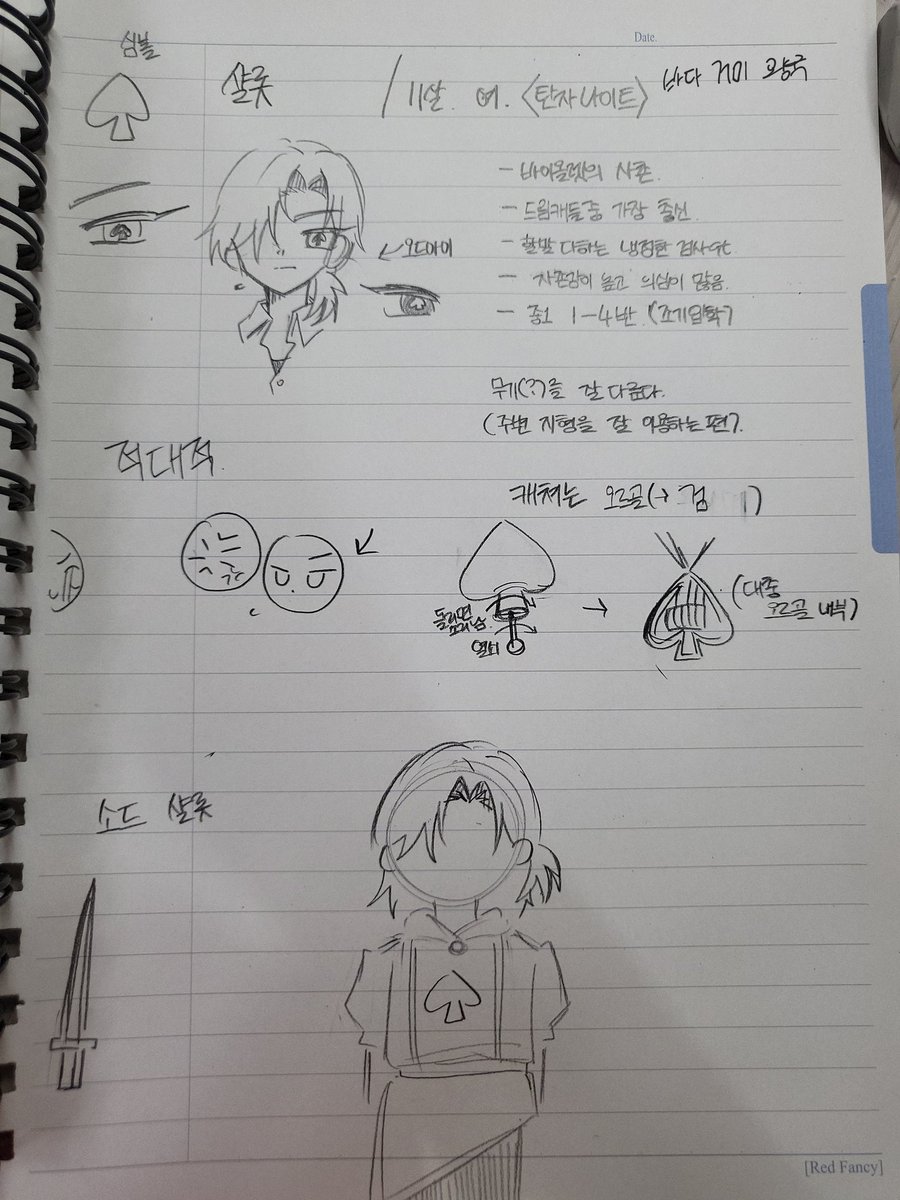 심볼
Date.
샬롯 / 11살. 여. <탄자나이트> 바다 거미 왕국
- 바이올렛의 사촌.
- 드림캐들 중 가장 출신.
←오드아이
- 할말 다하는 냉정한 검사
- 자존감이 높고 의심이 많음.
- 중1 1-4반. (조기입학)
무기(?)를 잘 다룬다.
(주변 지형을 잘 이용하는 편).
적대적.
캐쳐는 오르골(→ 검 )
돌리면
소리남.
열쇠
→
(대충
오르골 내부)
소드 샬롯
[Red Fancy]